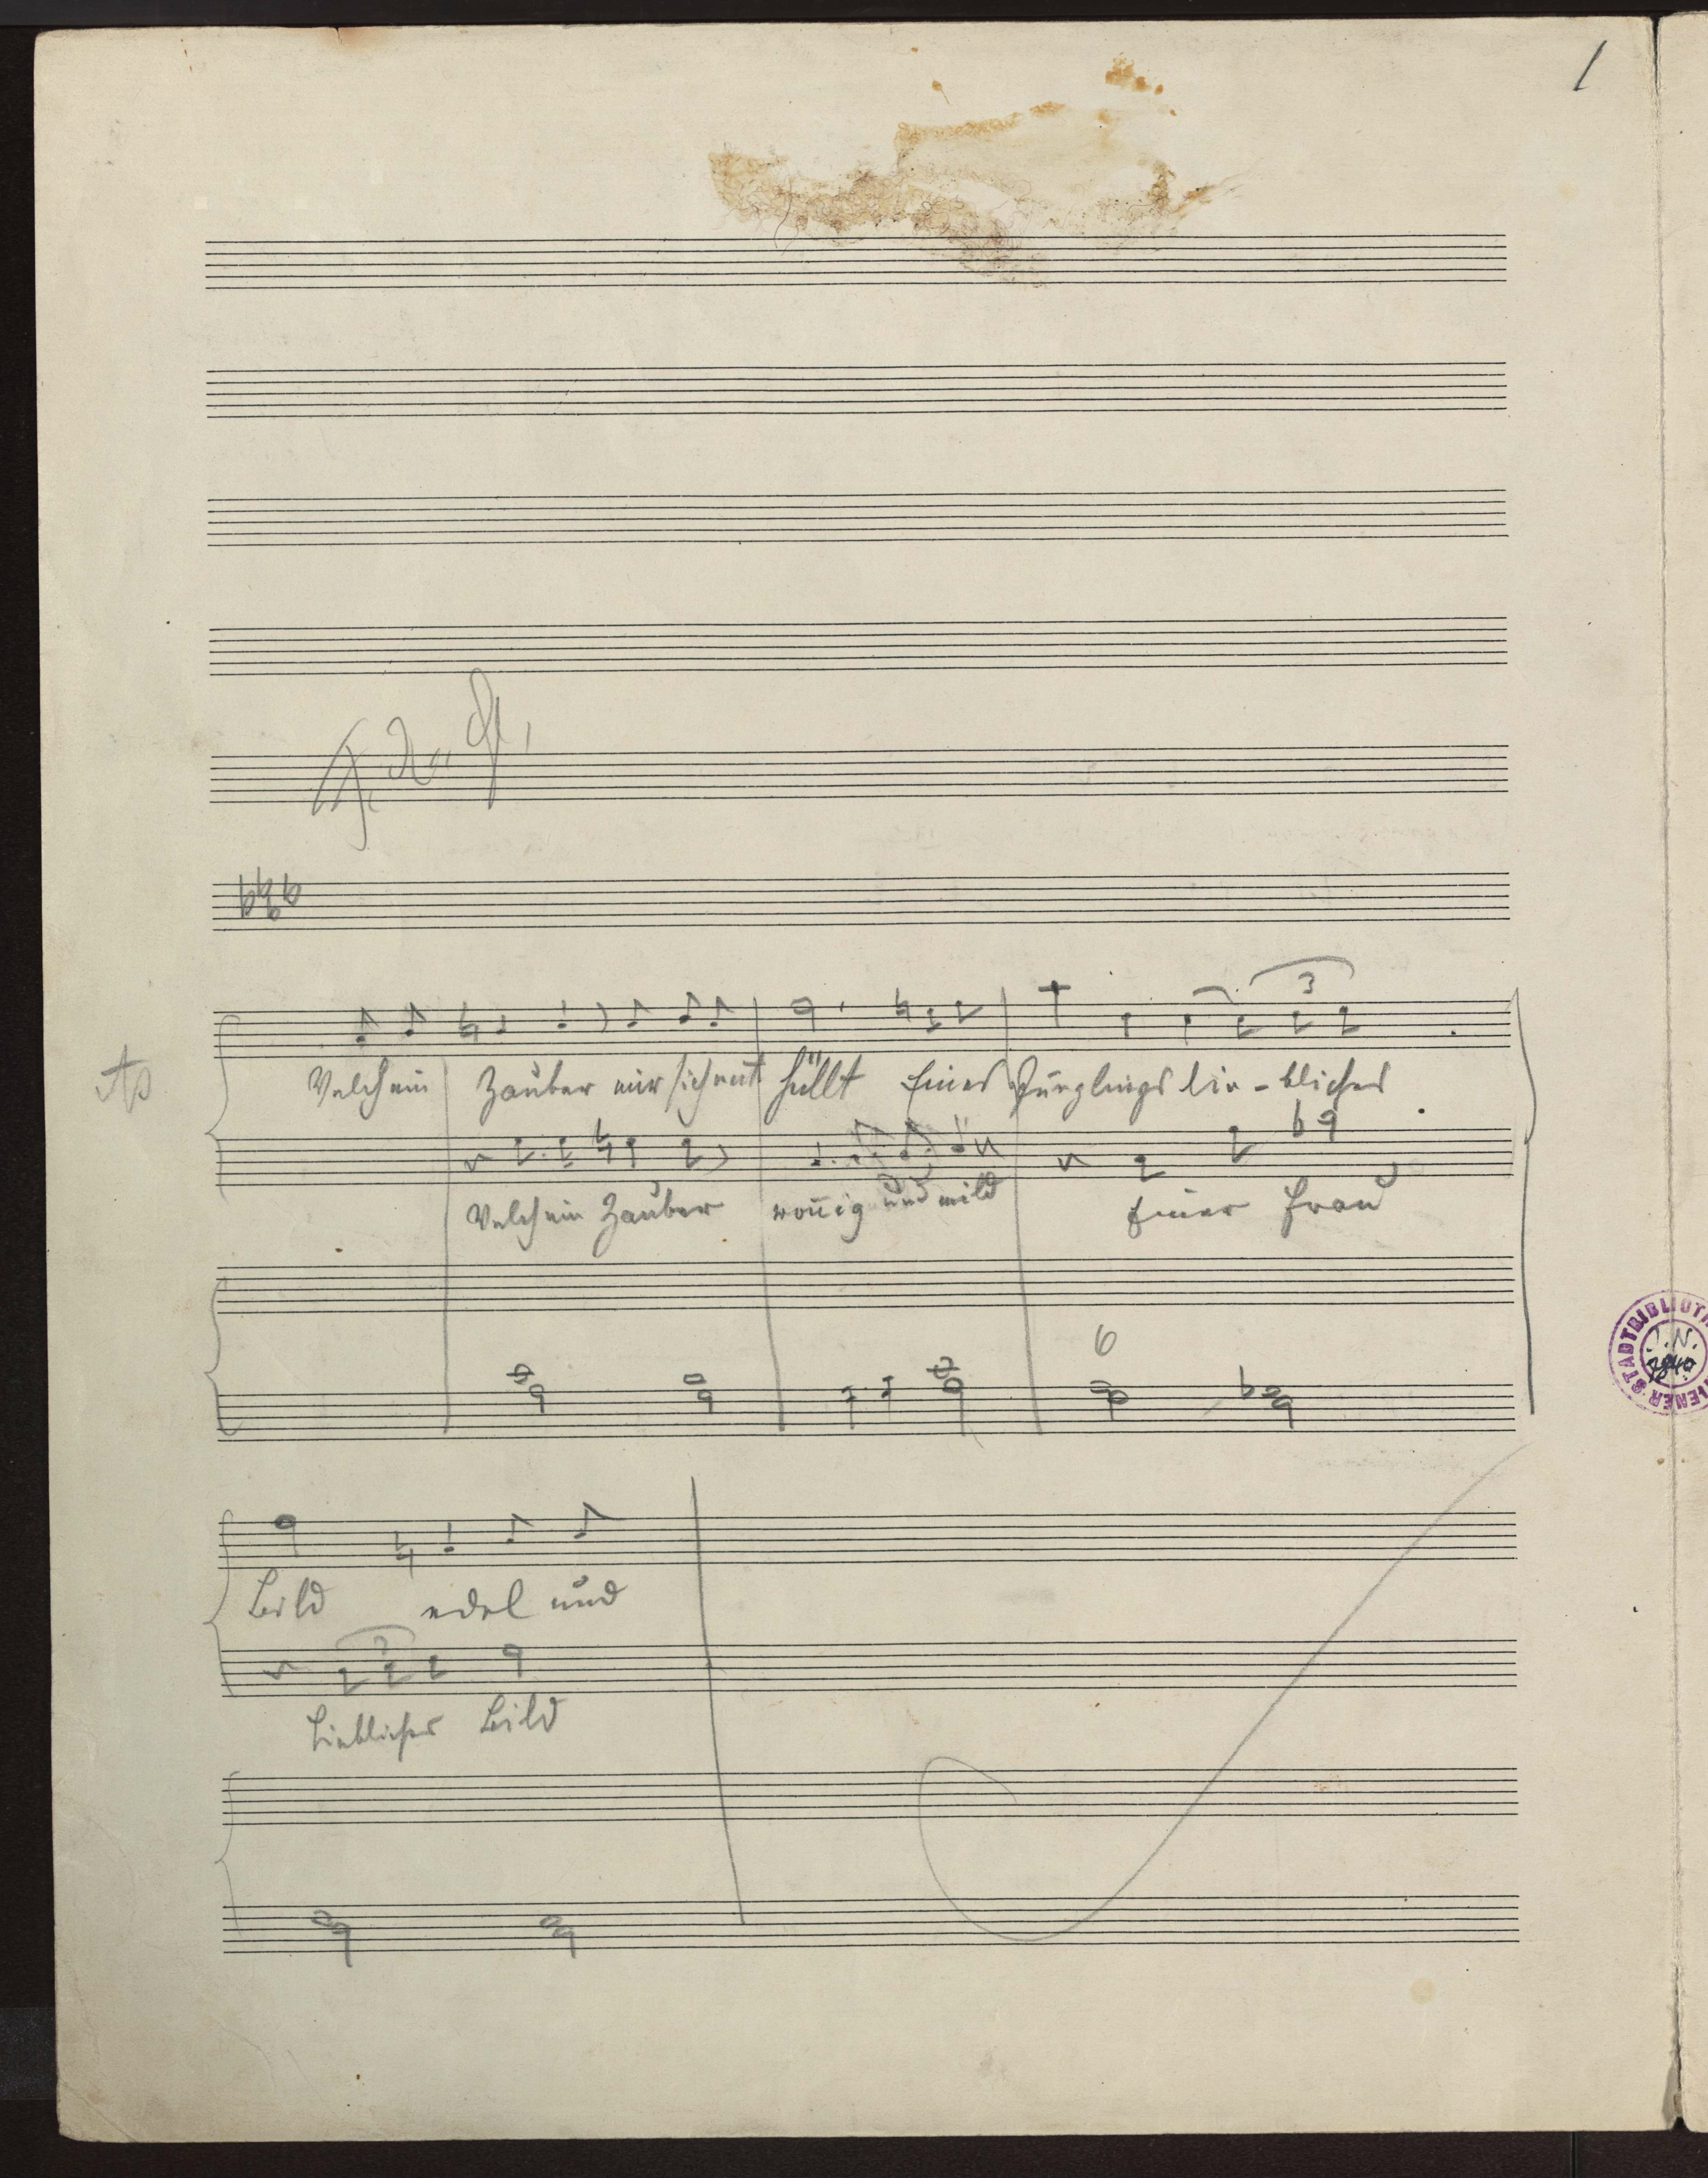 1
As
Welch ein Zauber mir sich ent hüllt Eines Jünglings lie - bliches
3
Welch ein Zauber woñig und mild Einer Frau
6
Bild edel und
3
Liebliches Bild
STADTBIBLIOTH
I.N.
WIENER